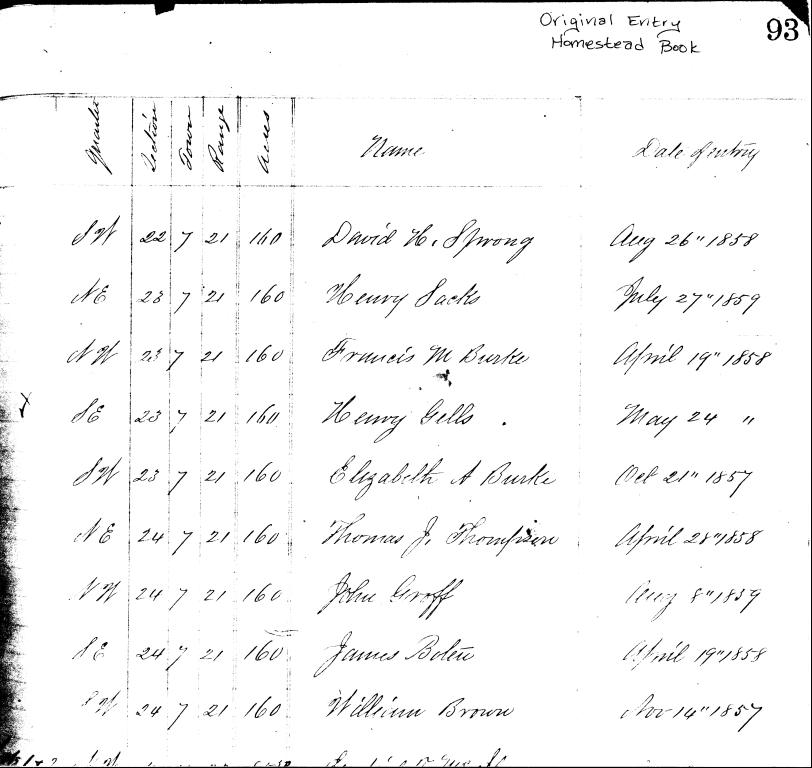 Original Entry
Homestead Book
93
Quarter Section Town Range Acres Name Date of entry
SW 22 7 21 160 David H. Sprong Aug 26" 1858
NE 23 7 21 160 Henry Sacks July 27" 1859
NW 23 7 21 160 Francis M Burke April 19" 1858
SE 23 7 21 160 Henry Gells May 24 "
SW 23 7 21 160 Elizabeth A Burke Oct 21" 1857
NE 24 7 21 160 Thomas J. Thompson April 28" 1858
NW 24 7 21 160 John Groff Aug 8" 1859
SE 24 7 21 160 James Bolen April 19" 1858
SW 24 7 21 160 William Brown Nov 14" 1857
NW